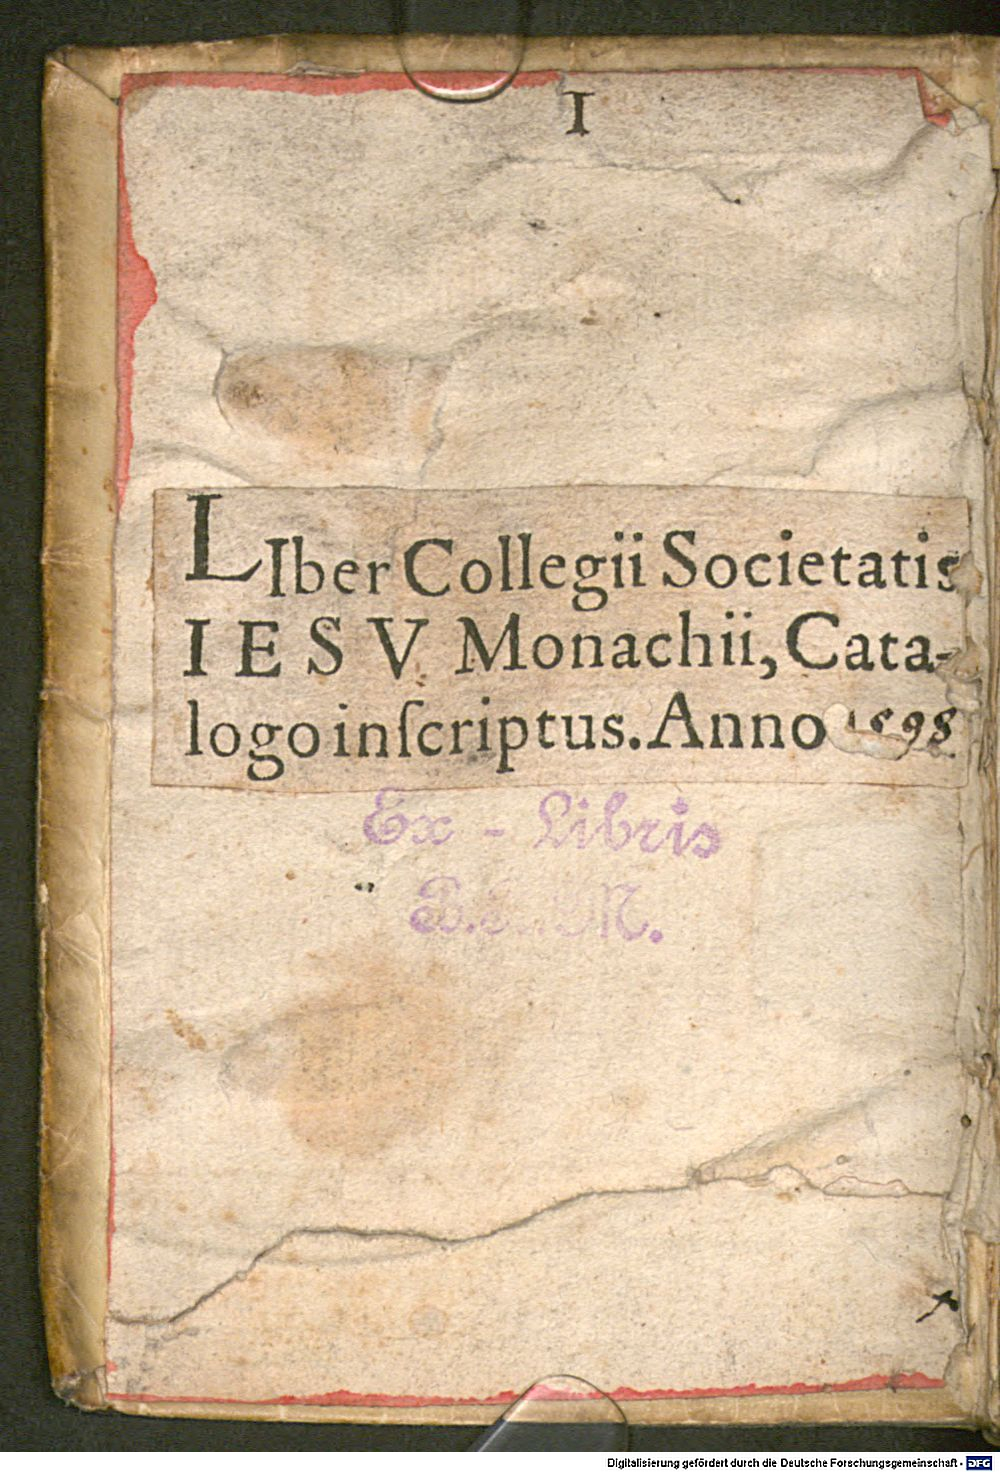 I
LIber Collegii Societatis
IESV Monachii, Cata-
logo inſcriptus. Anno 1598
Ex - Libris
Digitalisierung gefördert durch die Deutsche Forschungsgemeinschaft - DFG